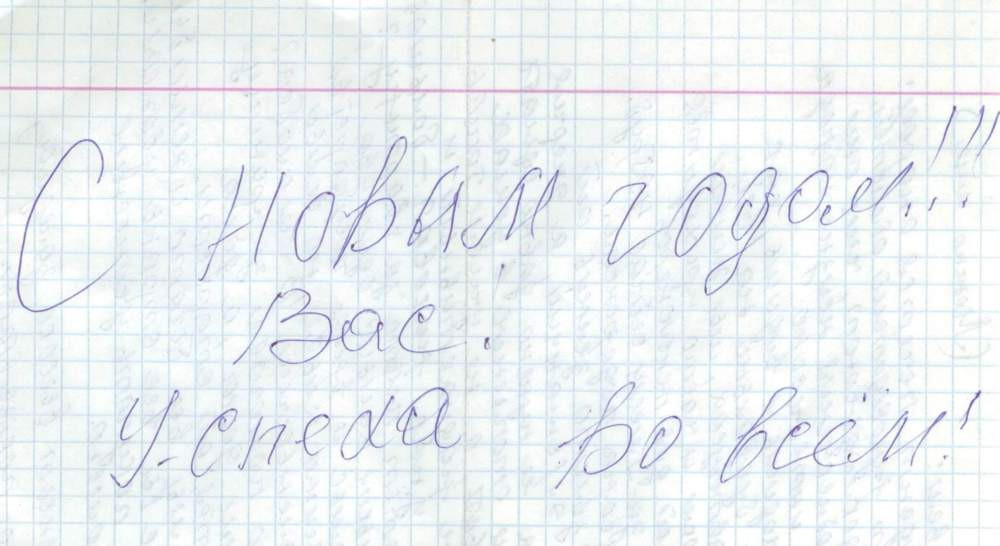 С новым годом!!!
Вас!
Успеха во всём!